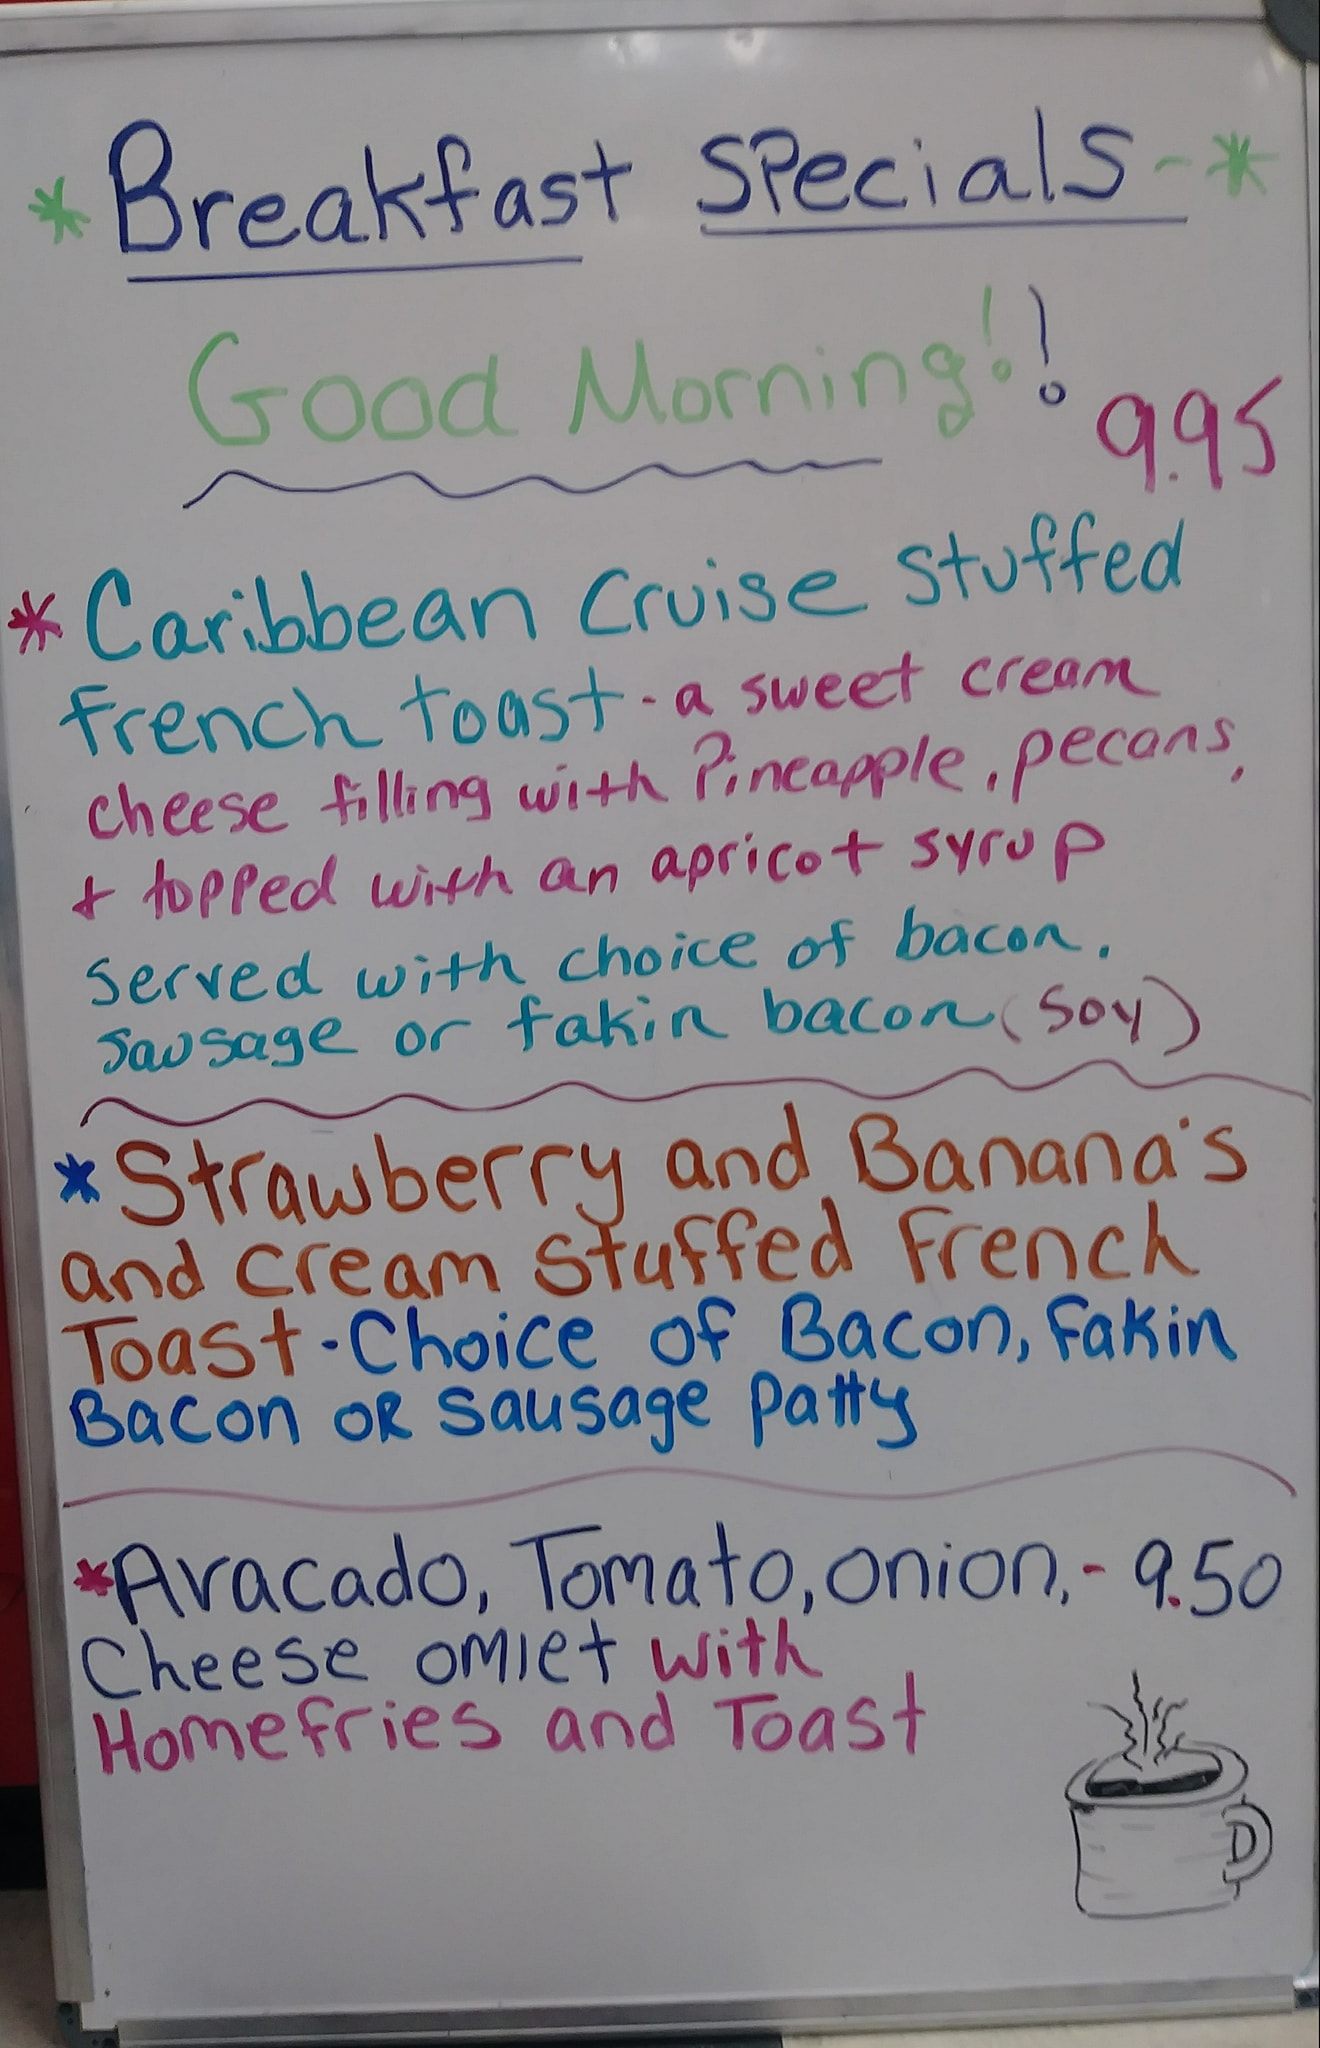 * Breakfast Specials - *
Good Morning!!
9.95
* Caribbean Cruise stuffed
french toast - a sweet cream
cheese filling with Pineapple, pecans,
+ topped with an apricot syrup
served with choice of bacon,
sausage or fakin bacon (soy)
* Strawberry and Banana's
and cream stuffed French
Toast - Choice of Bacon, Fakin
Bacon OR Sausage patty
* Avacado, Tomato, onion, - 9.50
Cheese omlet with
Homefries and Toast
D